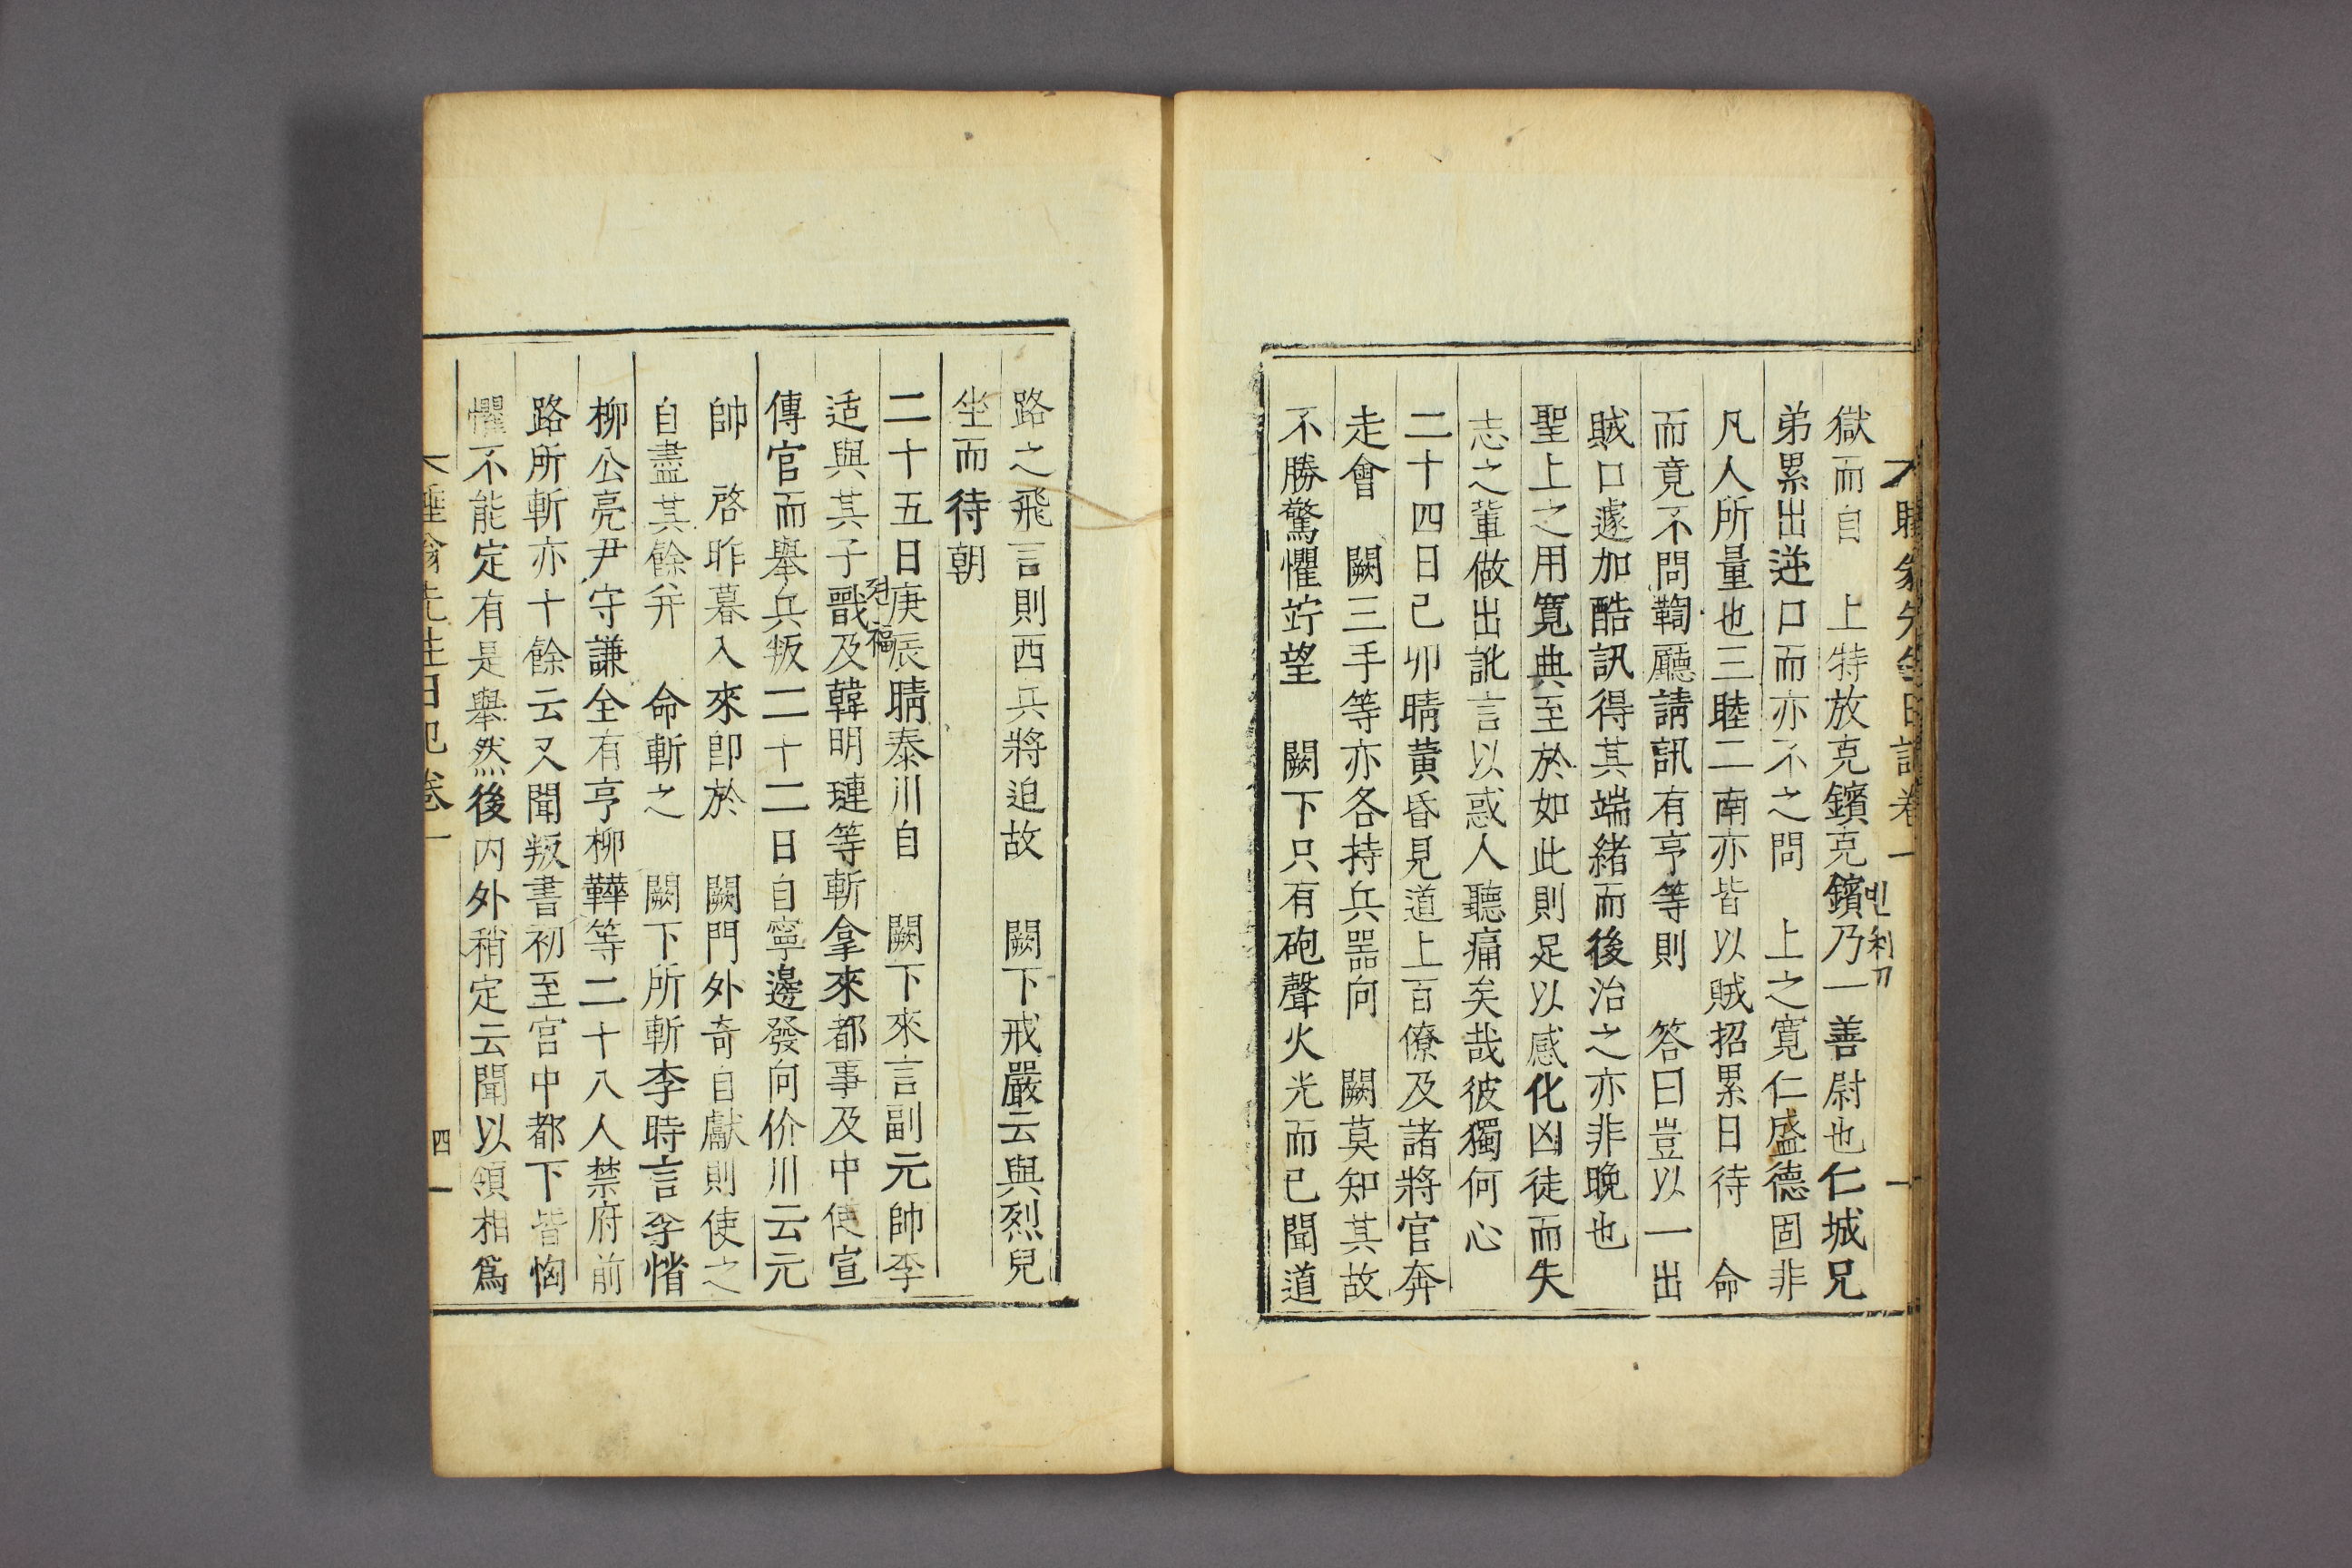 獄而自　上特放克鑌克鑌乃一善尉也仁城兄
弟累出逆口而亦不之問　上之寬仁盛德固非
凡人所量也三睦二南亦皆以賊招累日待　命
而竟不問鞫廳請訊有亨等則　答曰豈以一出
賊口遽加酷訊得其端緒而後治之亦非晚也
聖上之用寬典至於如此則足以感化凶徒而失
志之輩做出訛言以惑人聽痛矣哉彼獨何心
二十四日己卯晴黃昏見道上百僚及諸將官奔
走會　闕三手等亦各持兵器向　闕莫知其故
不勝驚懼竚望　闕下只有砲聲火光而已聞道
路之飛言則西兵將迫故　闕下戒嚴云與烈兒
坐而待朝
二十五日庚辰晴泰川自　闕下來言副元帥李
适與其子戩及韓明璉等斬拿來都事及中使宣
傳官而舉兵叛二十二日自寧邊發向价川云元
帥　啓昨暮入來卽於　闕門外奇自獻則使之
自盡其餘幷　命斬之　闕下所斬李時言李愭
柳公亮尹守謙全有亨柳韡等二十八人禁府前
路所斬亦十餘云又聞叛書初至宮中都下皆恟
懼不能定有是舉然後內外稍定云聞以領相爲
睡翁先生日記卷一
四